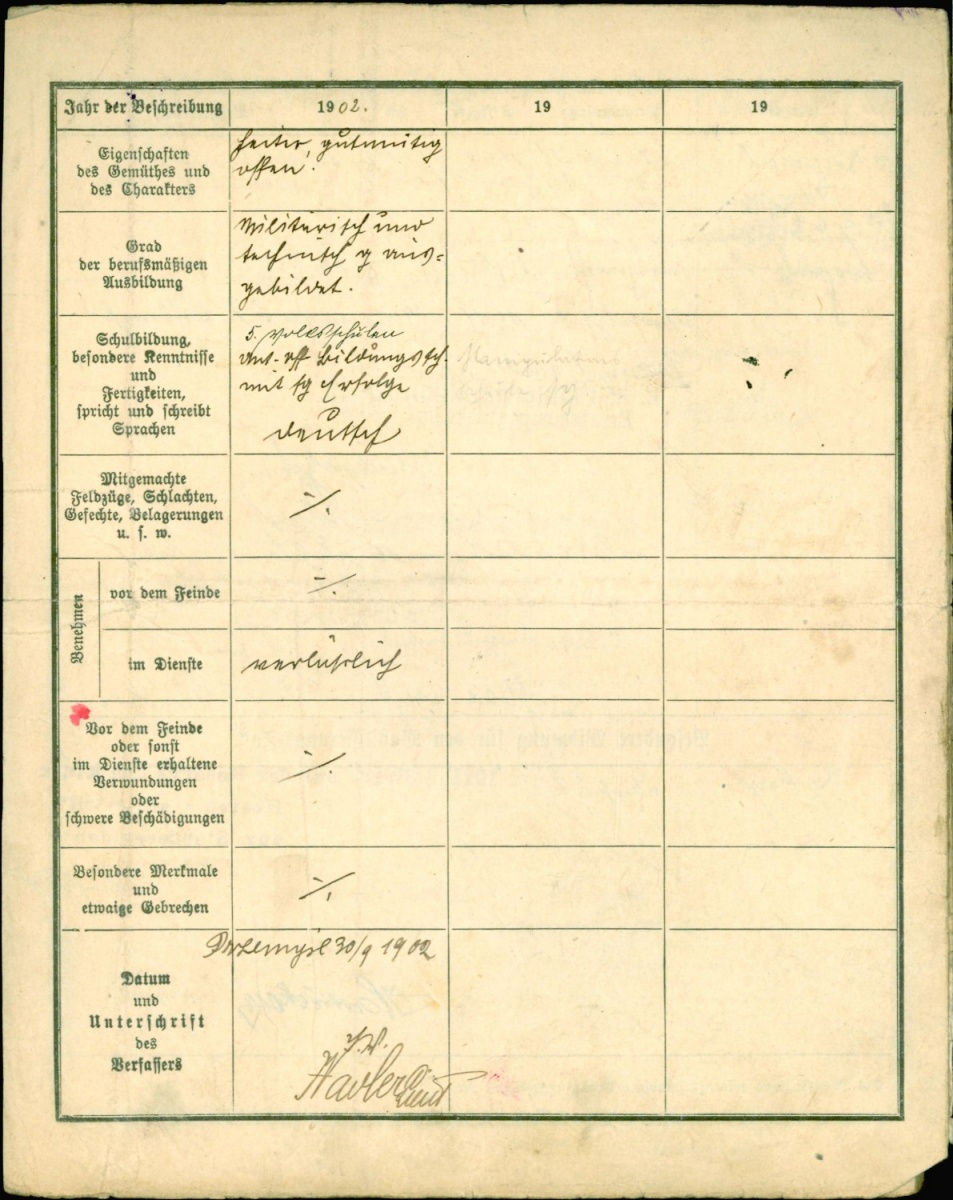 Jahr der Beschreibung
1902.
19
19
Eigenschaften
des Gemüthes und
des Charakters
heiter, gutmütig
offen.
Grad
der berufsmäßigen
Ausbildung
Militärisch und
technisch g aus-
gebildet.
Schulbildung,
besondere Kenntnisse
und
Fertigkeiten,
spricht und schreibt
Sprachen
5. Volksschulen
Unt-off Bildungssch.
mit sg Erfolge
deutsch
Mitgemachte
Feldzüge, Schlachten,
Gefechte, Belagerungen
u. s. w.
·/.
Benehmen
vor dem Feinde
·/.
im Dienste
verläßlich
Vor dem Feinde
oder sonst
im Dienste erhaltene
Verwundungen
oder
schwere Beschädigungen
·/.
Besondere Merkmale
und
etwaige Gebrechen
·/.
Datum
und
Unterschrift
des
Verfassers
Przemysl 30/9 1902